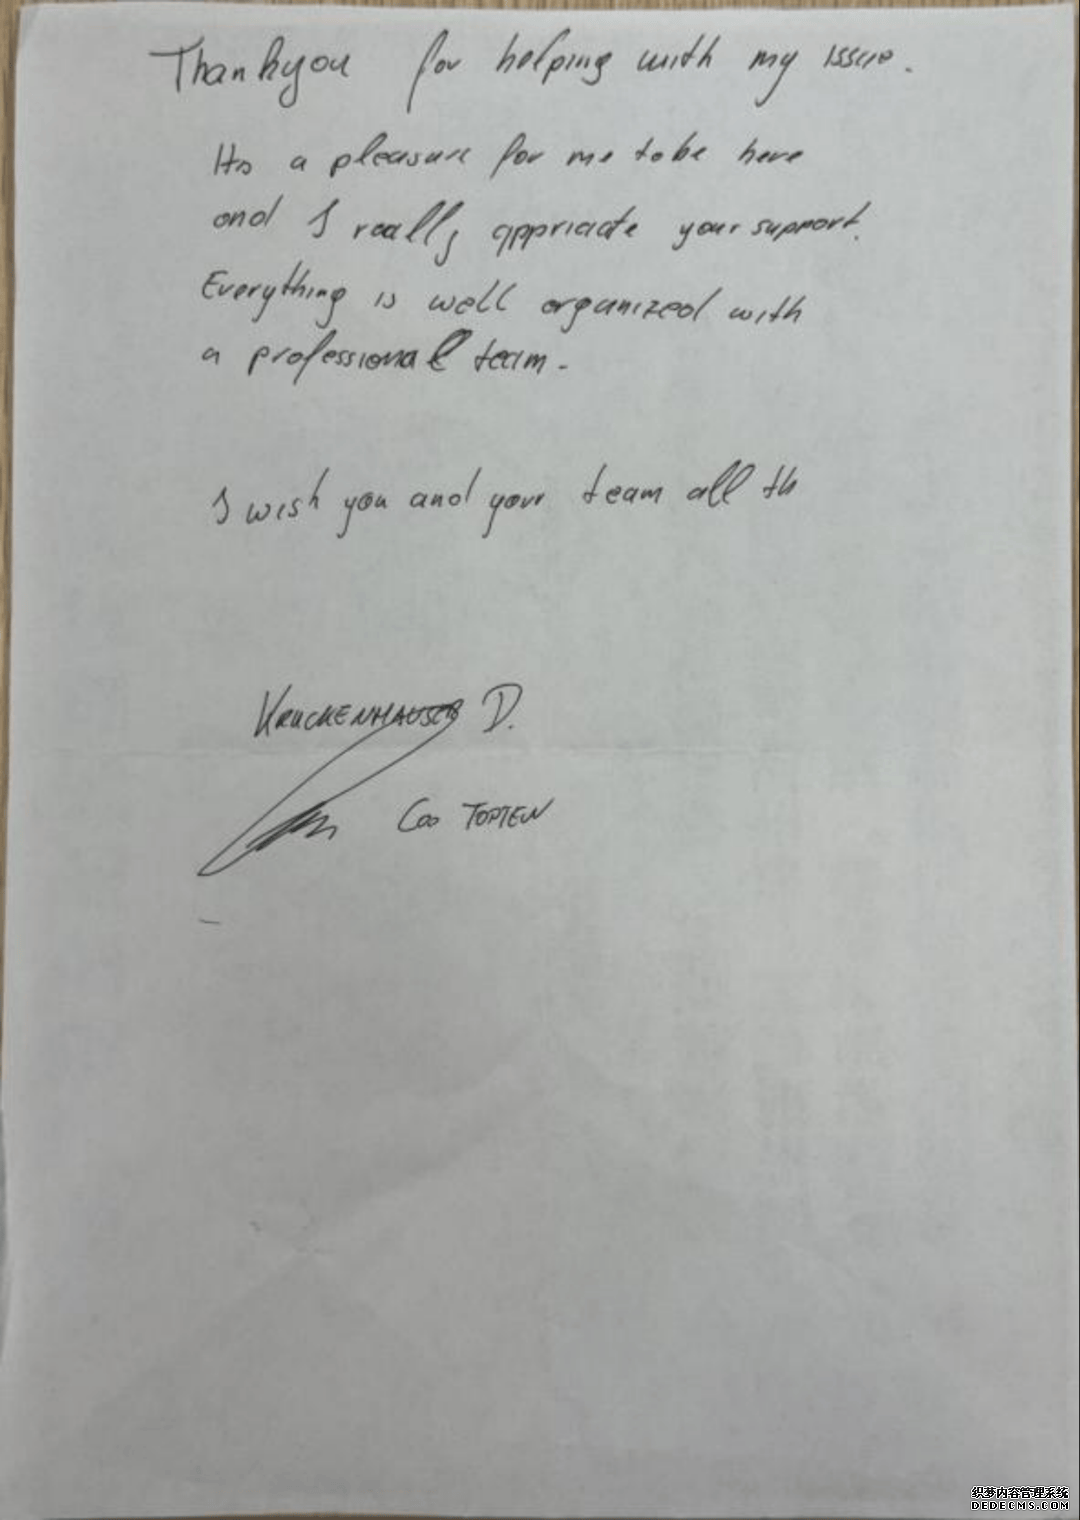 Thankyou for helping with my issue.
Its a pleasure for me to be here
and I really appriciate your support.
Everything is well organized with
a professional team.
I wish you and your team all th
KRUCKENHAUSER D.
COO TOPTEN
织梦内容管理系统
DEDECMS.COM